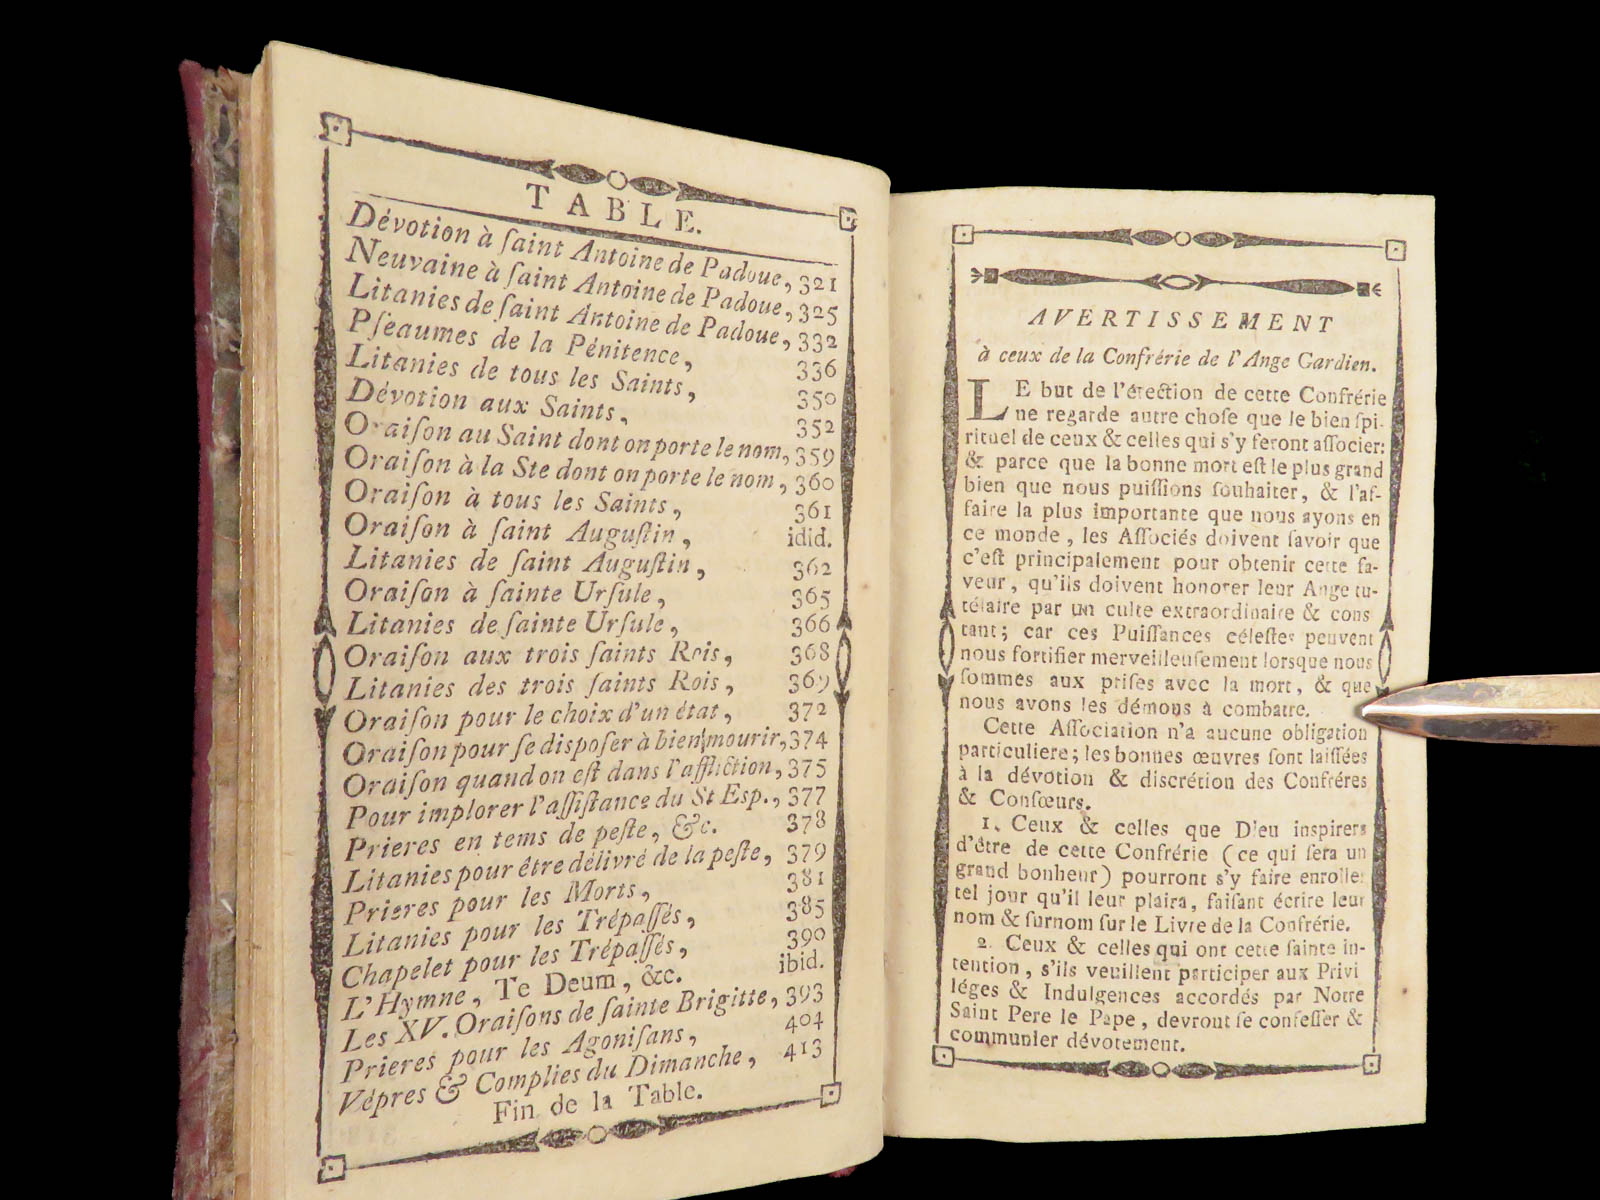 TABLE.
Dévotion à ſaint Antoine de Padoue, 321
Neuvaine à ſaint Antoine de Padoue, 325
Litanies de ſaint Antoine de Padoue, 332
Pſeaumes de la Pénitence, 336
Litanies de tous les Saints, 350
Dévotion aux Saints, 352
Oraiſon au Saint dont on porte le nom, 359
Oraiſon à la Ste dont on porte le nom, 360
Oraiſon à tous les Saints, 361
Oraiſon à ſaint Auguſtin, idid.
Litanies de ſaint Auguſtin, 362
Oraiſon à ſainte Urſule, 365
Litanies de ſainte Urſule, 366
Oraiſon aux trois ſaints Rois, 368
Litanies des trois ſaints Rois, 369
Oraiſon pour le choix d'un état, 372
Oraiſon pour ſe diſpoſer à bien mourir, 374
Oraiſon quand on eſt dans l'affliction, 375
Pour implorer l'aſſiſtance du St Eſp., 377
Prieres en tems de peſte, &c. 378
Litanies pour être délivré de la peſte, 379
Prieres pour les Morts, 381
Litanies pour les Trépaſſés, 385
Chapelet pour les Trépaſſés, 390
L'Hymne, Te Deum, &c. ibid.
Les XV. Oraiſons de ſainte Brigitte, 393
Prieres pour les Agoniſans, 404
Vépres & Complies du Dimanche, 413
Fin de la Table.
AVERTISSEMENT
à ceux de la Confrérie de l'Ange Gardien.
LE but de l'érection de cette Confrérie
ne regarde autre choſe que le bien ſpi-
rituel de ceux & celles qui s'y feront aſſocier:
& parce que la bonne mort eſt le plus grand
bien que nous puiſſions ſouhaiter, & l'af-
faire la plus importante que nous ayons en
ce monde, les Aſſociés doivent ſavoir que
c'eſt principalement pour obtenir cette fa-
veur, qu'ils doivent honorer leur Ange tu-
télaire par un culte extraordinaire & cons
tant; car ces Puiſſances céleſtes peuvent
nous fortifier merveilleuſement lorsque nous
ſommes aux priſes avec la mort, & que
nous avons les démons à combatre.
Cette Aſſociation n'a aucune obligation
particuliere; les bonnes œuvres ſont laiſſées
à la dévotion & discrétion des Confréres
& Conſœurs.
1. Ceux & celles que Dieu inspirera
d'être de cette Confrérie (ce qui ſera un
grand bonheur) pourront s'y faire enroller
tel jour qu'il leur plaira, faiſant écrire leur
nom & ſurnom ſur le Livre de la Confrérie.
2. Ceux & celles qui ont cette ſainte in-
tention, s'ils veuillent participer aux Privi
léges & Indulgences accordés par Notre
Saint Pere le Pape, devront ſe confeſſer &
communier dévotement.